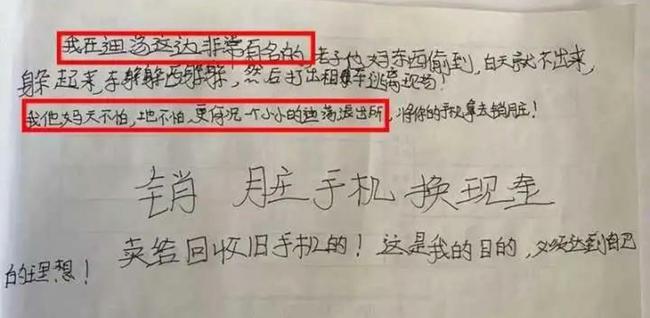 我在迪荡这边非常有名的,老子他妈东西偷到,白天就不出来,
躲起来,东躲躲西躲躲,然后打出租车逃离现场!
我他妈天不怕,地不怕,更何况一个小小的迪荡派出所,将你的手机拿去销脏!
销 脏 手机 换现金
卖给回收旧手机的!这是我的目的,必须达到自己
的理想!